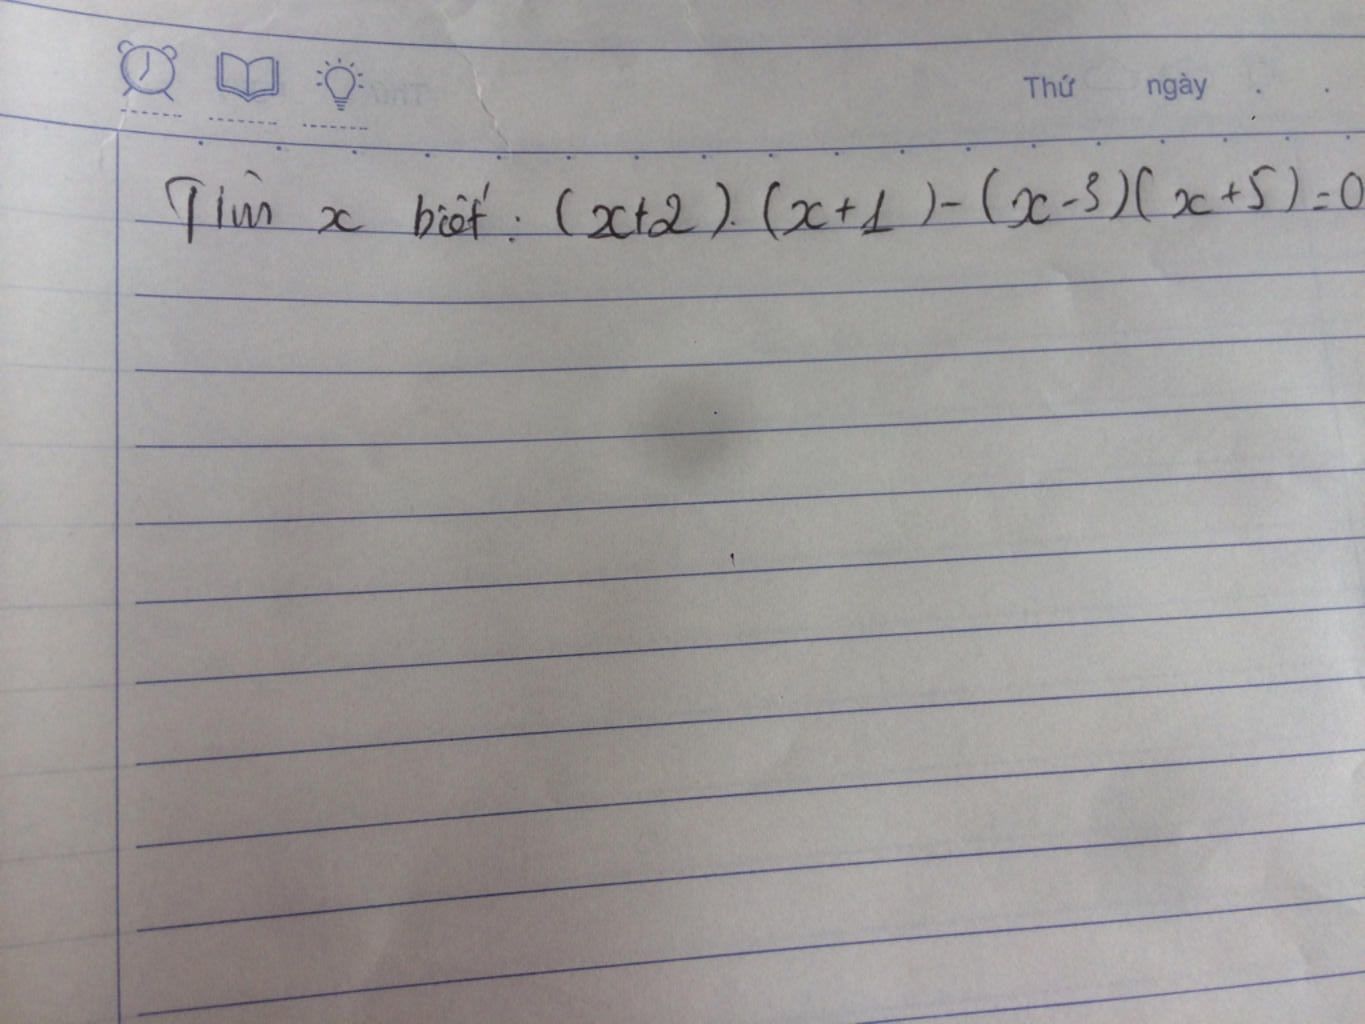 Thứ ngày . .
Tìm x biết: (x+2).(x+1)-(x-3)(x+5)=0